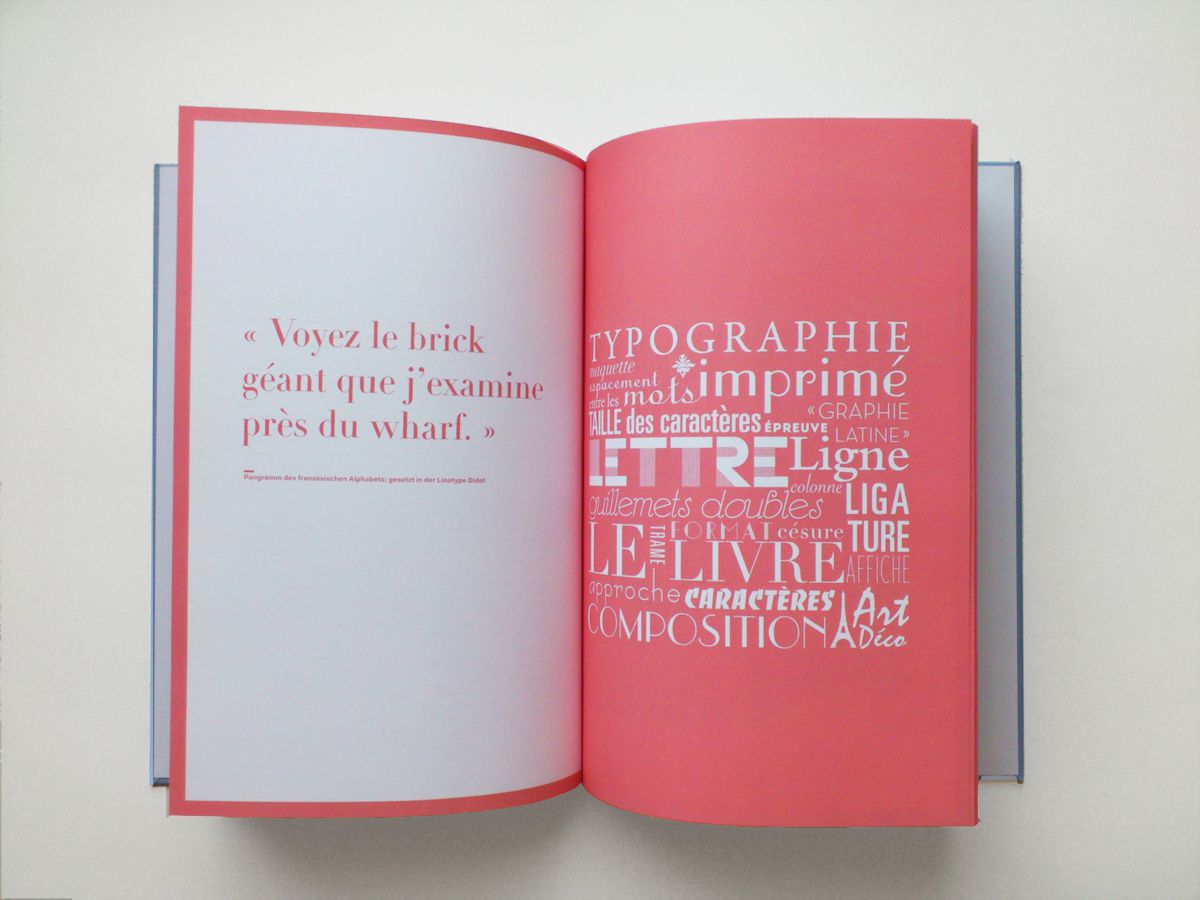 « Voyez le brick
géant que j’examine
près du wharf. »
Pangramm des französischen Alphabets; gesetzt in der Linotype Didot
TYPOGRAPHIE
maquette
espacement
entre les mots
imprimé
« GRAPHIE
LATINE »
TAILLE des caractères
ÉPREUVE
LETTRE
Ligne
colonne
guillemets doubles
LIGA
TURE
LE
TRAME
FORMAT césure
LIVRE
AFFICHE
approche
CARACTÈRES
Art
Déco
COMPOSITION